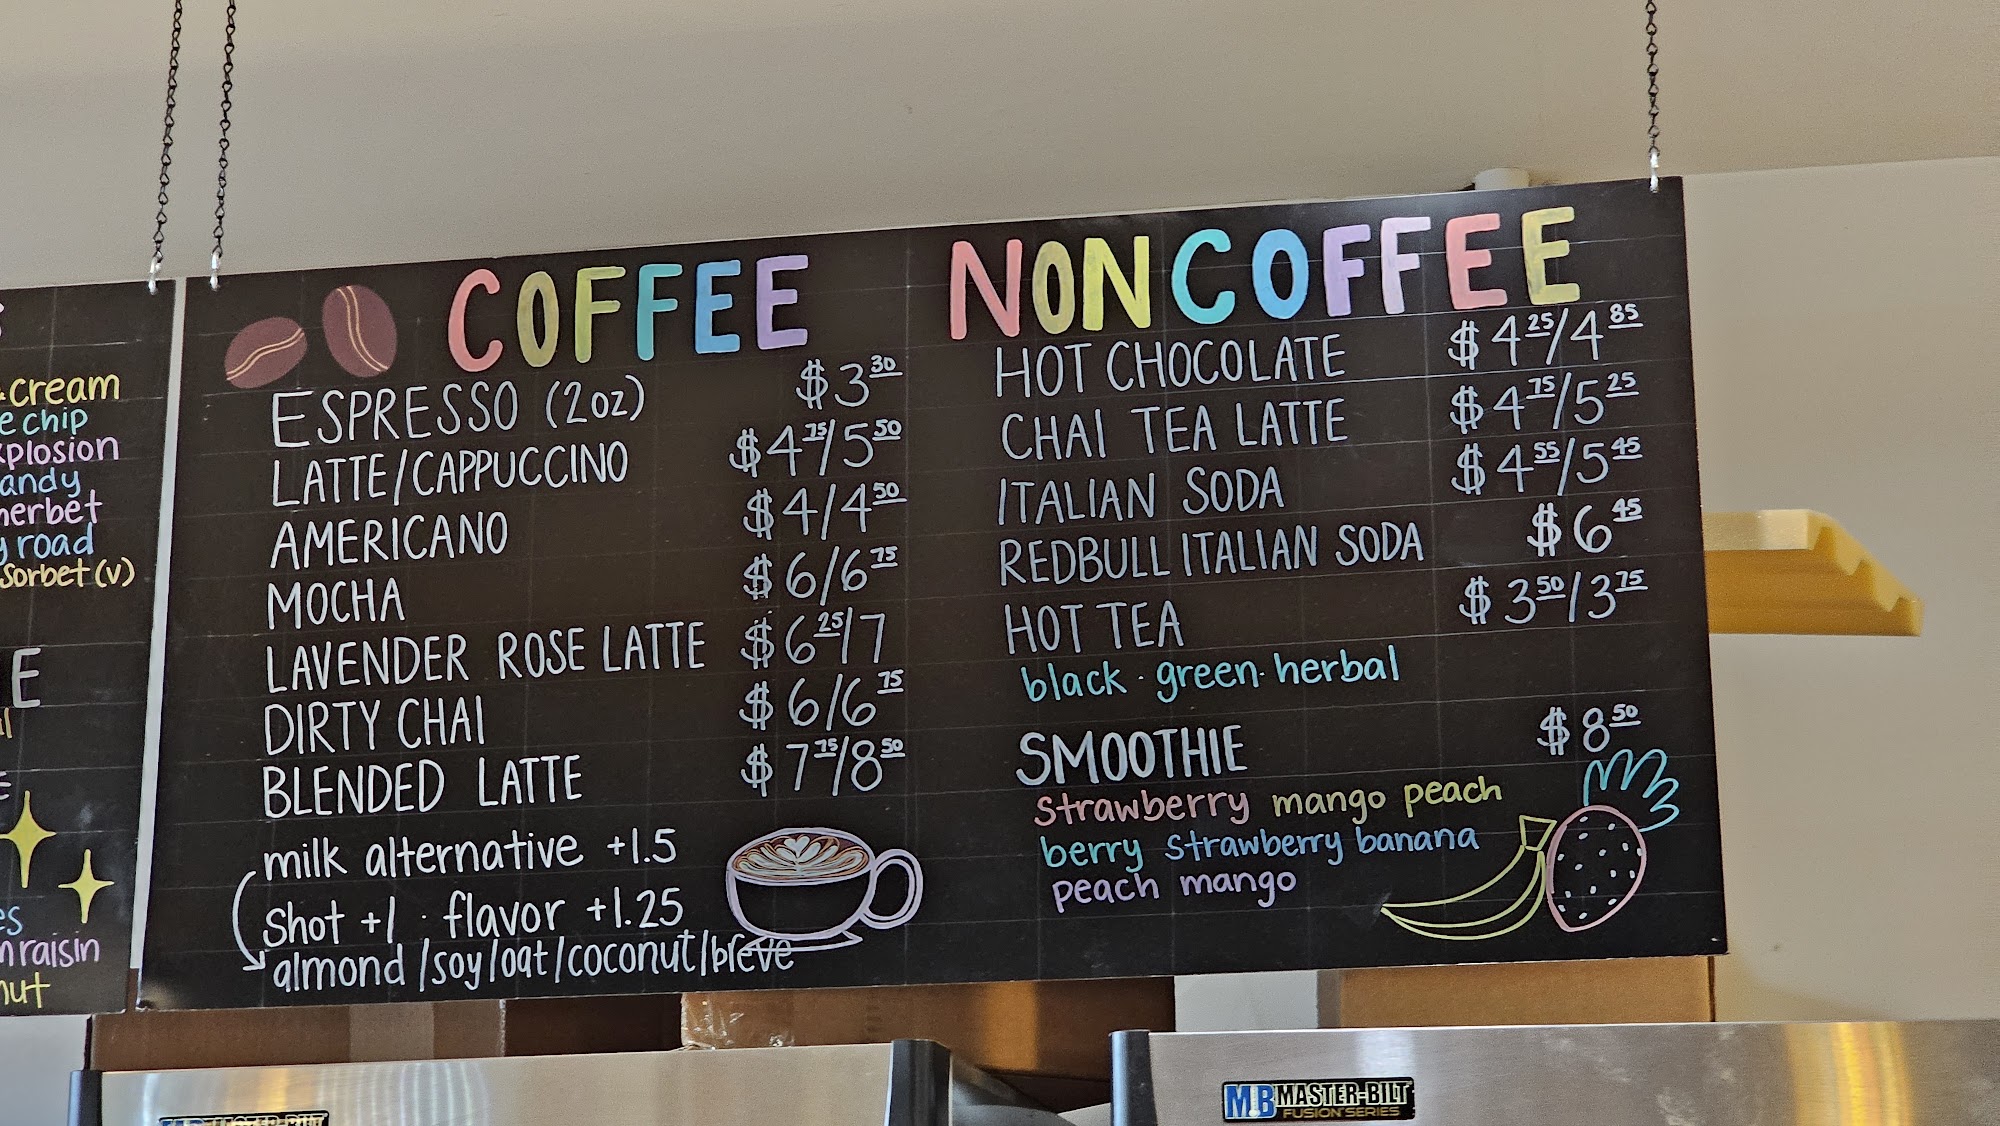 cream
e chip
xplosion
andy
herbet
y road
sorbet (v)
E
es
n raisin
nut
COFFEE
ESPRESSO (2oz) $3 30
LATTE/CAPPUCCINO $4 75/5 50
AMERICANO $4/4 50
MOCHA $6/6 75
LAVENDER ROSE LATTE $6 25/7
DIRTY CHAI $6/6 75
BLENDED LATTE $7 75/8 50
milk alternative +1.5
shot +1 · flavor +1.25
almond/soy/oat/coconut/breve
NONCOFFEE
HOT CHOCOLATE $4 25/4 85
CHAI TEA LATTE $4 75/5 25
ITALIAN SODA $4 55/5 45
REDBULL ITALIAN SODA $6 45
HOT TEA $3 50/3 75
black · green · herbal
SMOOTHIE $8 50
strawberry mango peach
berry strawberry banana
peach mango
MB MASTER-BILT
FUSION SERIES